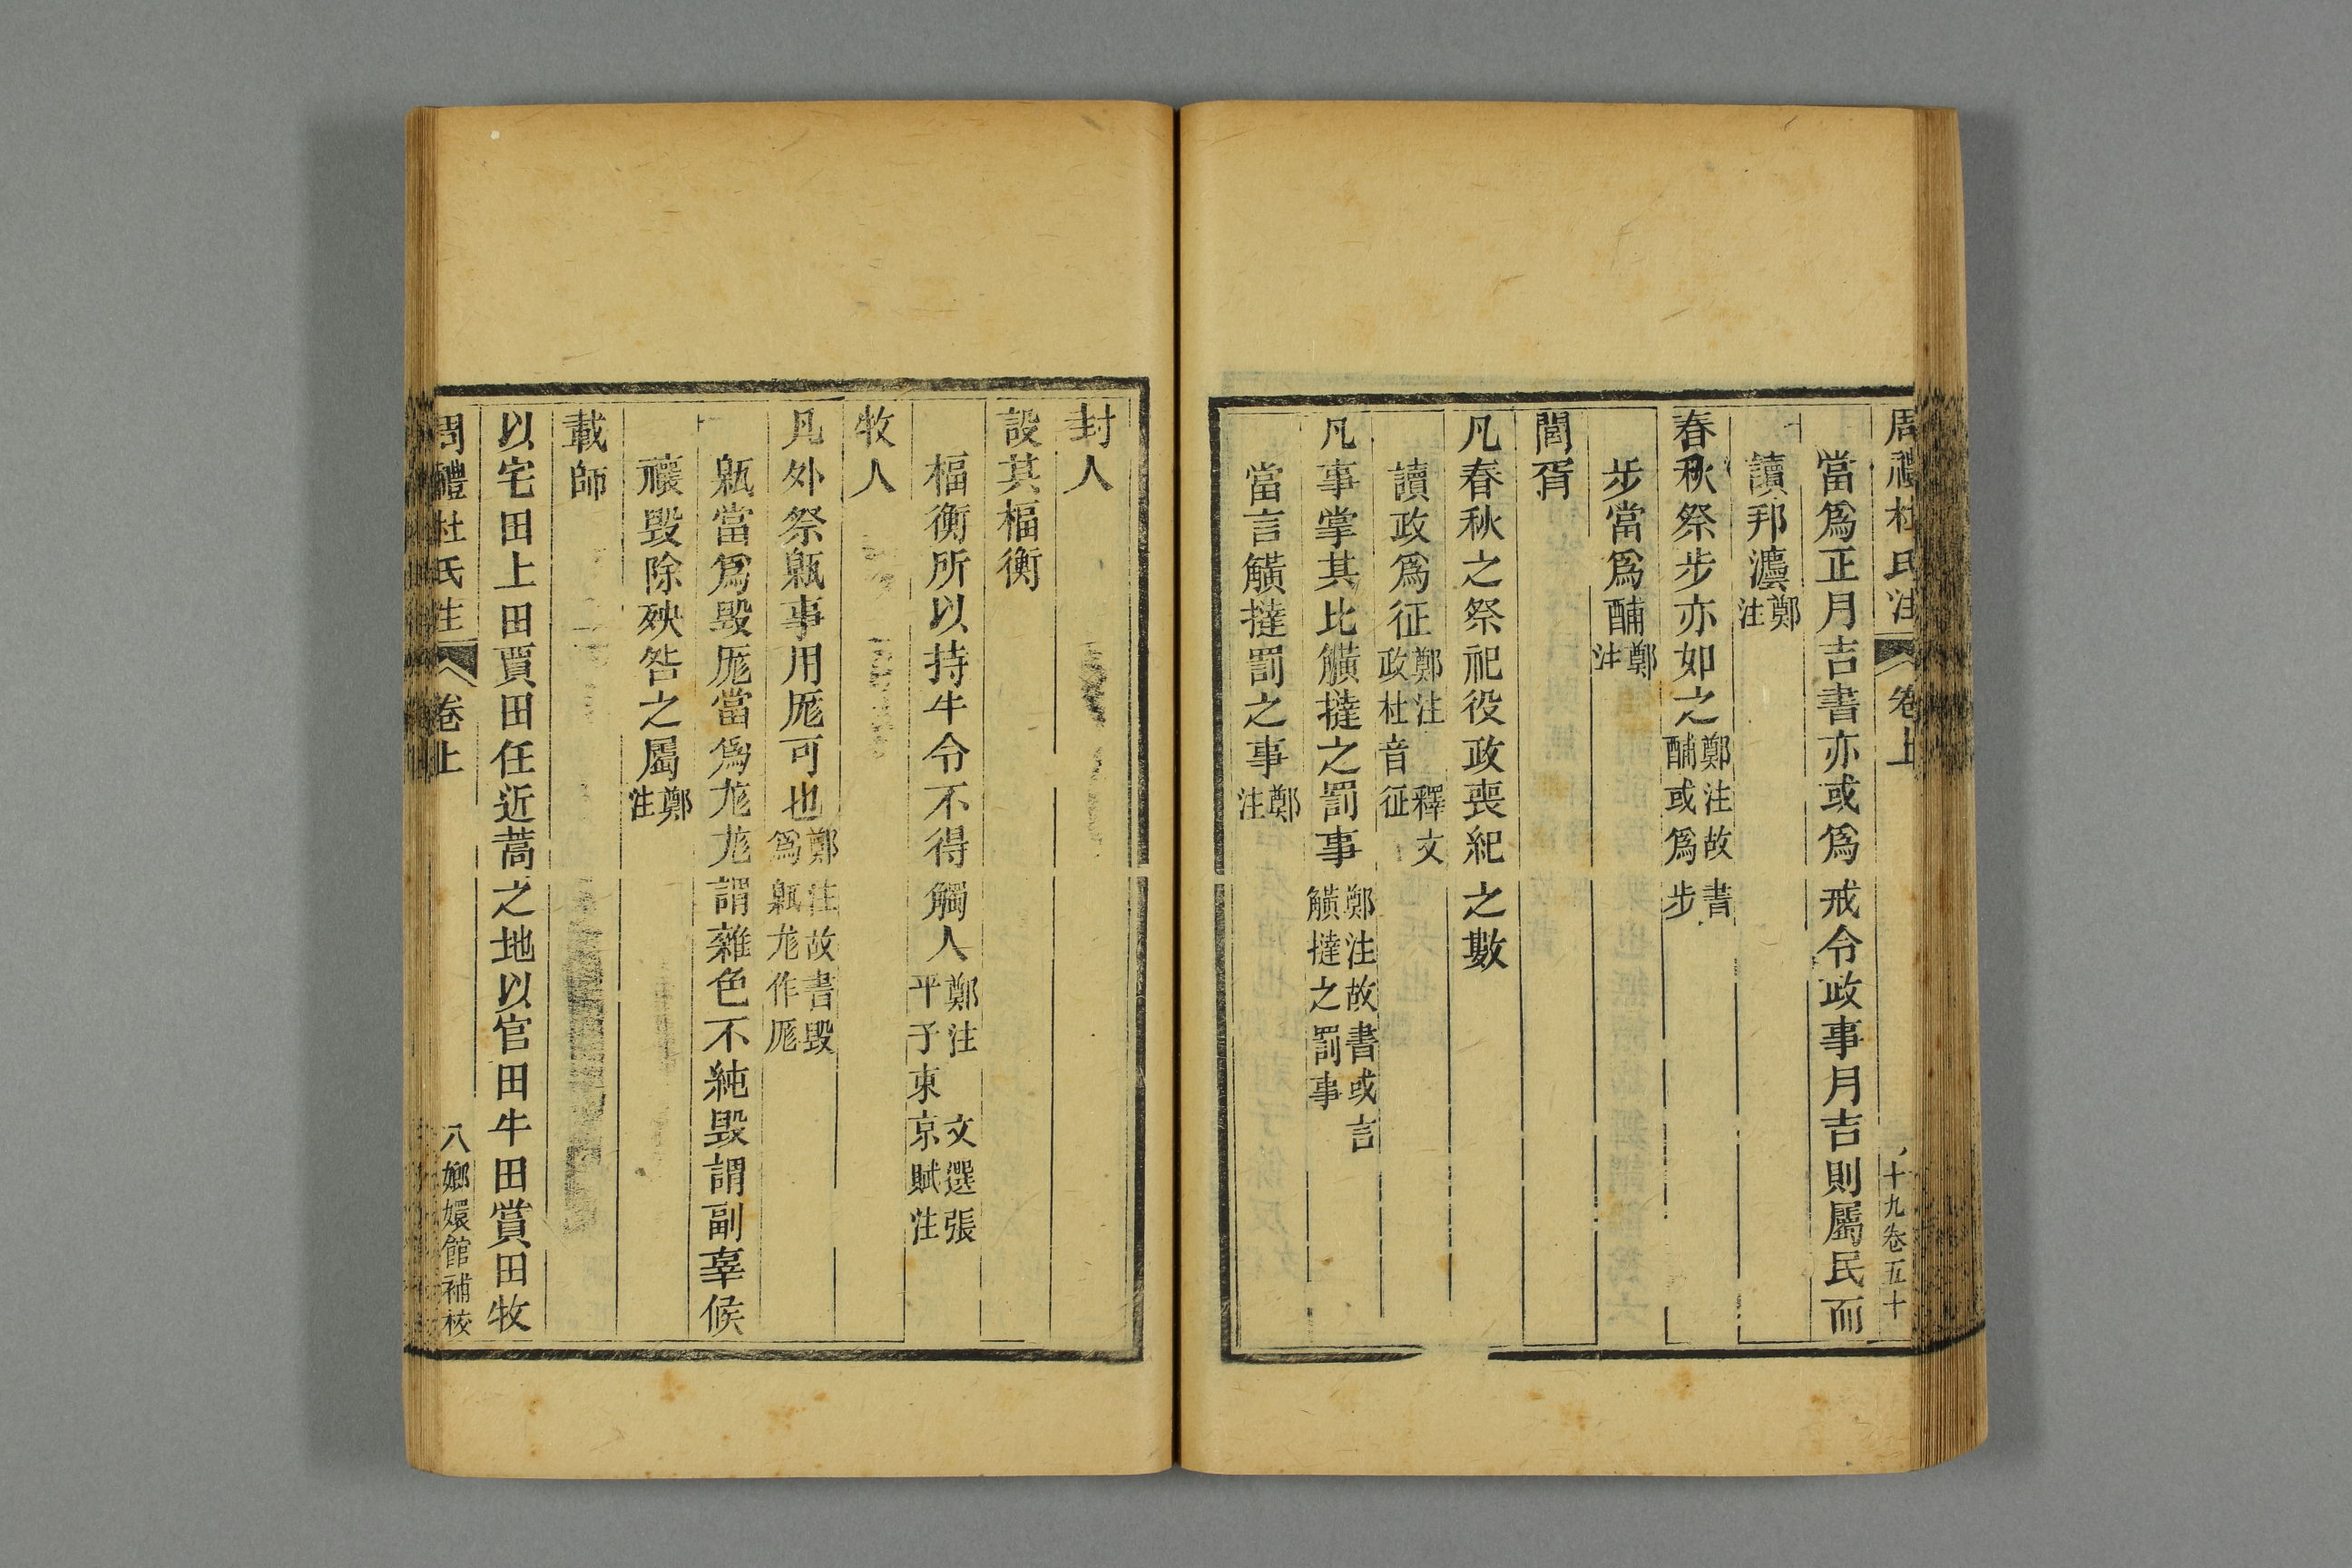 周禮杜氏注 卷上 十九卷五十
當爲正月吉書亦或爲戒令政事月吉則屬民而
讀邦灋鄭注
春秋祭步亦如之鄭注故書酺或爲步
步當爲酺鄭注
閭胥
凡春秋之祭祀役政喪紀之數
讀政爲征鄭注政杜音征釋文
凡事掌其比觵撻之罰事鄭注故書或言觵撻之罰事
當言觵撻罰之事鄭注
封人
設其楅衡
楅衡所以持牛令不得觸人鄭注 文選張平子東京賦注
牧人
凡外祭甈事用厖可也鄭注故書毀爲甈尨作厖
甈當爲毀厖當爲尨尨謂雜色不純毀謂副辜候
禳毀除殃咎之屬鄭注
載師
以宅田上田賈田任近蒿之地以官田牛田賞田牧
周禮杜氏注 卷上 八嫏嬛館補校